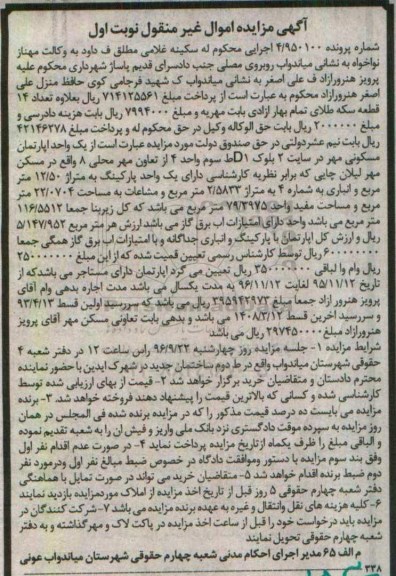 آگهی مزایده اموال غیر منقول نوبت اول
شماره پرونده ۴/۹۵۰۱۰۰ اجرایی محکوم له سکینه غلامی مطلق ف داود به وکالت مهناز
نواخواه به نشانی میاندواب روبروی مصلی جنب دادسرای قدیم پاساژ شهرداری محکوم علیه
پرویز هنرورآزاد ف علی اصغر به نشانی میاندواب ک شهید فرجامی کوی حافظ منزل علی
اصغر هنرورآزاد محکوم به عبارت است از پرداخت مبلغ ۷۱۴۱۲۵۵۶۱ ریال بعلاوه تعداد ۱۴
قطعه سکه طلای تمام بهار آزادی بابت مهریه و مبلغ ۷۹۹۴۰۰۰ ریال بابت هزینه دادرسی و
مبلغ ۲۰۰۰۰۰۰ ریال بابت حق الوکاله وکیل در حق محکوم له و پرداخت مبلغ ۴۲۱۴۶۳۷۸
ریال بابت نیم عشردولتی در حق صندوق دولت مورد مزایده عبارت است از یک واحد آپارتمان
مسکونی مهر در سایت ۲ بلوک D1ط سوم واحد ۴ از تعاون مهر محلی ۸ واقع در مسکن
مهر لیلان چایی که برابر نظریه کارشناسی دارای یک واحد پارکینگ به متراژ ۱۲/۵۰ متر
مربع و انباری به شماره ۴ به متراژ ۲/۵۸۳۳ متر مربع و مشاعات به مساحت ۲۲/۰۷۰۴ متر
مربع و مساحت مفید واحد ۷۹/۳۹۷۵ متر مربع می باشد که کل زیربنا جمعا ۱۱۶/۵۵۱۲
متر مربع می باشد واحد دارای امتیازات آب برق گاز می باشد ارزش هر متر مربع ۵/۱۴۷/۹۵۲
ریال و ارزش کل آپارتمان با پارکینگ و انباری جداگانه و با امتیازات آب برق گاز همگی جمعا
۶۰۰۰۰۰۰۰۰ ریال توسط کارشناس رسمی تعیین قمیت شده که از این مبلغ ۲۵۰۰۰۰۰۰۰
ریال وام والباقی ۳۵۰۰۰۰۰۰۰ ریال تعیین می گرد آپارتمان دارای مستاجر می باشدکه از
تاریخ ۹۵/۱۱/۱۲ لغایت ۹۶/۱۱/۱۲ به مدت یکسال می باشد مدت اجاره بدهی وام آقای
پرویز هنرور آزاد جمعا مبلغ ۳۹۵۹۴۲۹۷۳ ریال می باشد که سررسید اولین قسط ۹۳/۴/۱۳
و سررسید آخرین قسط ۱۴۰۸/۳/۱۲ می باشد و بدهی بابت تعاونی مسکن مهر آقای پرویز
هنرورآزاد مبلغ ۲۹۷۴۵۰۰۰۰ ریال می باشد
شرایط مزایده ۱- جلسه مزایده روز چهارشنبه ۹۶/۹/۲۲ راس ساعت ۱۲ در دفتر شعبه ۴
حقوقی شهرستان میاندواب واقع در ط دوم ساختمان جدید در شهرک ایدین با حضور نماینده
محترم دادستان و متقاضیان خرید برگزار خواهد شد ۲- قیمت از بهای ارزیابی شده توسط
کارشناسی شده و کسانی که بالاترین قیمت را پیشنهاد دهند فروخته خواهد شد. ۳- برنده
مزایده می بایست ده درصد قیمت مذکور را که در مزایده برنده شده فی المجلس در همان
روز مزایده به سپرده موقت دادگستری نزد بانک ملی واریز و فیش ان را به شعبه تقدیم نموده
و الباقی مبلغ را ظرف یکماه از تاریخ مزایده پرداخت نماید ۴- در صورت عدم اقدام نفر اول
وفق بند سوم مزایده با دستور وموافقت دادگاه در خصوص ضبط مبالغ نفر اول ودرمورد نفر
دوم ضبط برنده اقدام خواهد شد ۵- متقاضیان خرید می تواند در صورت تمایل با هماهنگی
دفتر شعبه چهارم حقوقی ۵ روز قبل از تاریخ اخذ مزایده از املاک موردمزایده بازدید نمایند
۶-کلیه هزینه های نقل وانتقال و غیره به عهده برنده مزایده می باشد ۷-شرکت کنندگان در
مزایده باید درخواست خود را قبل از ساعت اخذ مزایده در پاکت لاک و مهرگذاشته و به دفتر
شعبه چهارم حقوقی تحویل نمایند
م الف ۶۵ مدیر اجرای احکام مدنی شعبه چهارم حقوقی شهرستان میاندواب عونی
۳۳۸